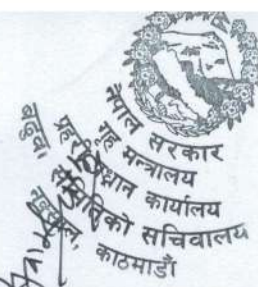 नेपाल सरकार
गृह मन्त्रालय
प्रहरी प्रधान कार्यालय
बढुवा समितिको सचिवालय
काठमाडौं